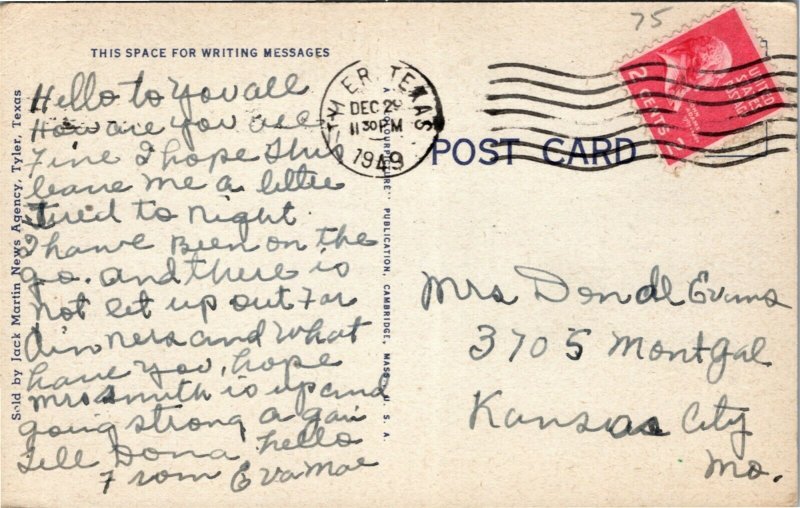 75
THIS SPACE FOR WRITING MESSAGES
Hello to you all
How are you all
Fine I hope this
leave me a little
tired to night
I have Been on the
go. and there is
not let up out For
dinners and what
have you, hope
mrs smith is up and
going strong a gain
Tell Dona hello
From Eva Mae
Sold by Jack Martin News Agency, Tyler, Texas
PUBLICATION, CAMBRIDGE, MASS., U. S. A.
TYLER, TEXAS
DEC 29
11 30 PM
1949
POST CARD
2 CENTS 2
Mrs Dendl Evans
3705 Montgal
Kansas City
Mo.